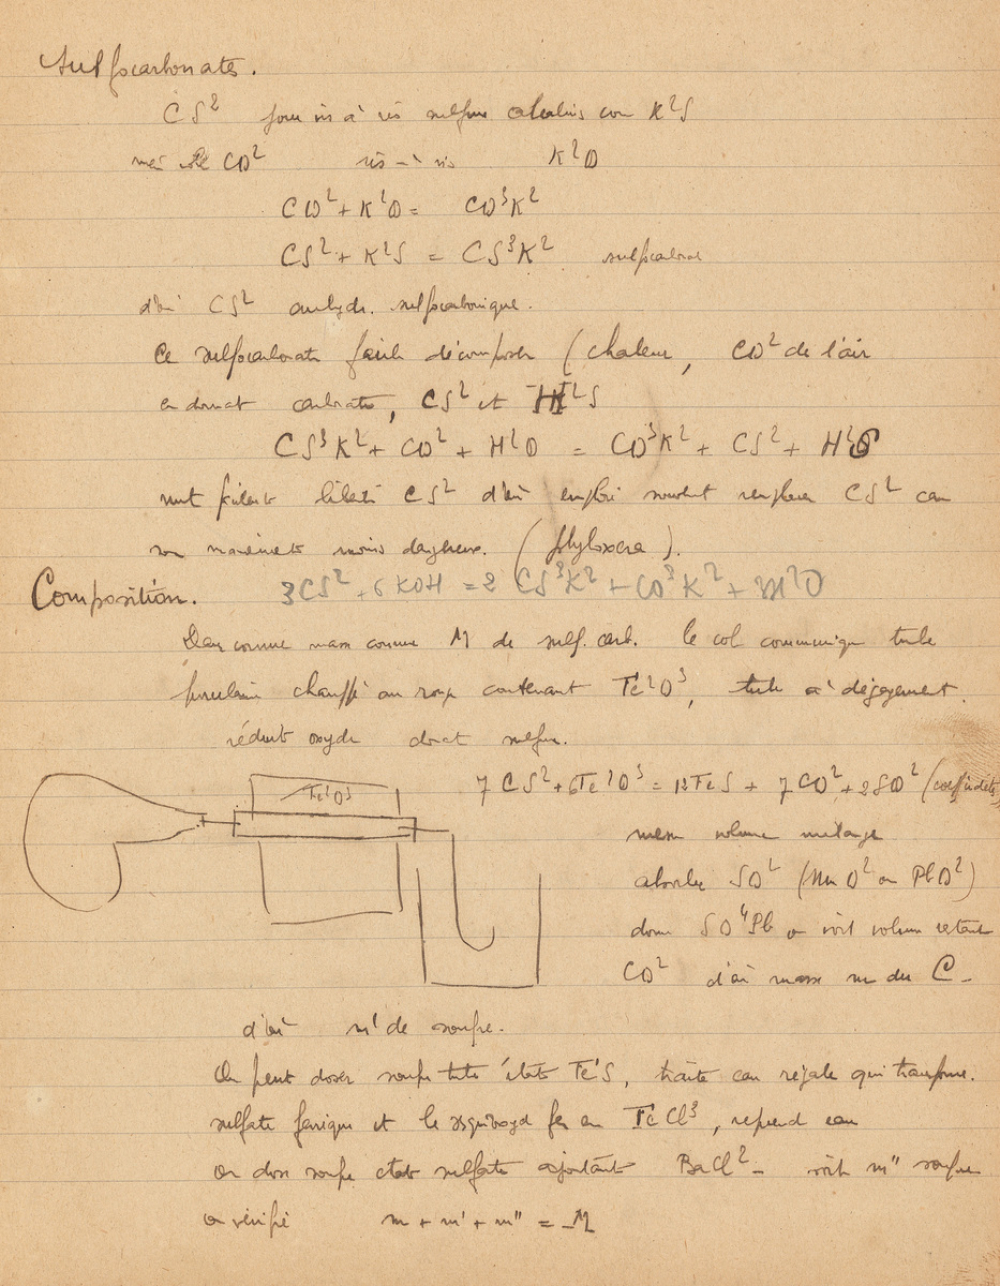 Sulfocarbonates.
CS² joue vis à vis sulfure alcalins com K²S
CO² vis-à-vis K²O
CO² + K²O = CO³K²
CS² + K²S = CS³K² sulfocarbonate
d'où CS² anhydr. sulfocarbonique.
Ce sulfocarbonate facile décomposer (chaleur, CO² de l'air
en donnant carbonate, CS² et H²S
CS³K² + CO² + H²O = CO³K² + CS² + H²S
liberté CS² d'où emploi souvent remplacer CS² car
son maniement moins dangereux. (phylloxera).
Composition. 3CS² + 6KOH = 2CS³K² + CO³K² + 3H²O
Dans cornue masse connue M de sulf. carb. le col communique tube
porcelaine chauffé au rouge contenant Fe²O³, tube à dégagement.
réduit oxyde donnant sulfure.
Fe²O³
7CS² + 6Fe²O³ = 12FeS + 7CO² + 2SO² (coeff indét)
mesure volume mélange
absorbe SO² (MnO² ou PbO²)
donne SO⁴Pb on voit volume restant
CO² d'où masse m du C -
d'où m' de soufre.
On peut doser soufre état FeS, traite eau régale qui transforme.
sulfate ferrique et le sesquioxyde fer en FeCl³, reprend eau
on dose soufre état sulfate ajoutant BaCl² - soit m" soufre
on vérifie m + m' + m" = M